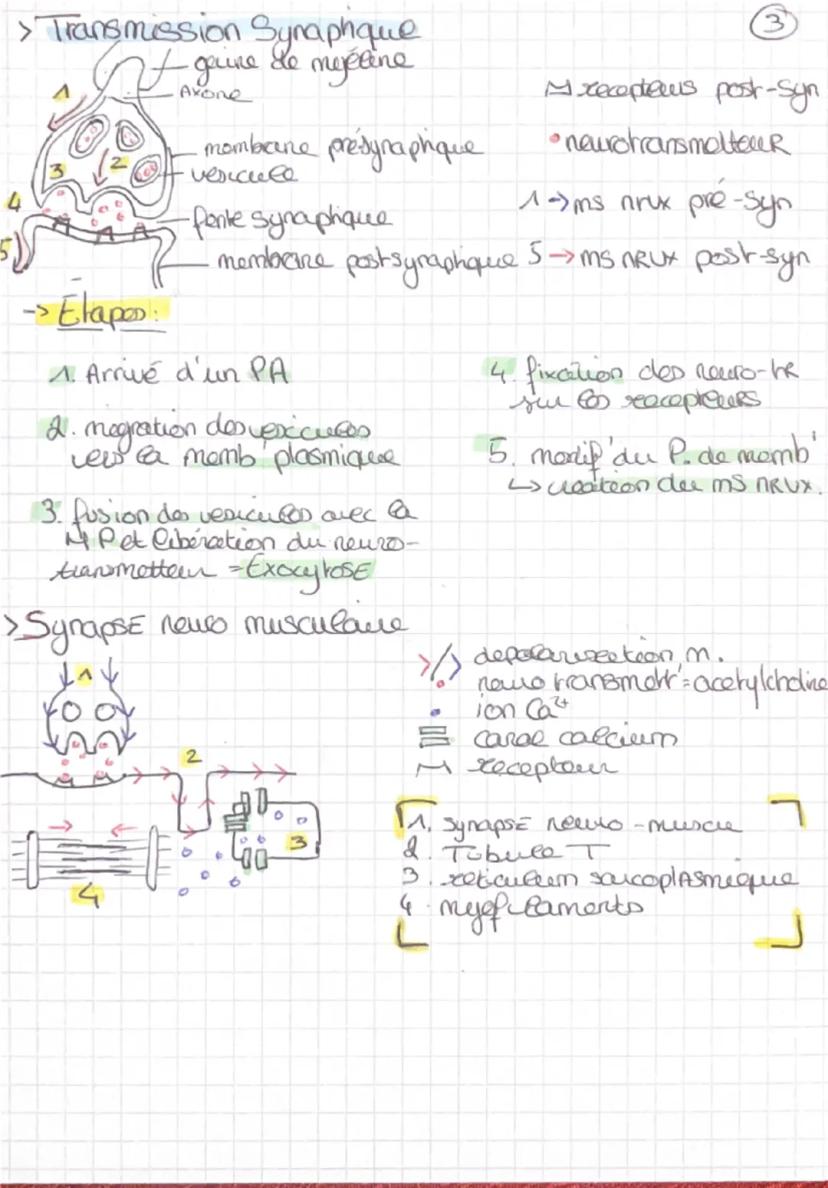 > Transmission Synaptique
3
gaine de myéline
Axone
1
membrane présynaptique
vesicule
3
2
4
fente synaptique
5
membrane postsynaptique
recepteurs post-syn
neurotransmetteur
1 -> ms nrux pré-syn
5 -> ms NRUX post-syn
-> Étapes:
1. Arrivé d'un PA
2. migration des vesicules
vers la memb' plasmique
3. fusion des vesicules avec la
MP et libération du neuro-
transmetteur = ExocytosE
4. fixation des neuro-tr
sur les recepteurs
5. modif' du P. de memb'
↳ création du ms NRUX.
> SynapsE neuro musculaire
1
2
3
4
>/> depolarisation m.
neuro transmett' = acetylcholine
ion Ca²⁺
canal calcium
recepteur
1. SynapsE neuro-muscu
2. Tubule T
3. reticulum sarcoplasmique
4. myofilaments